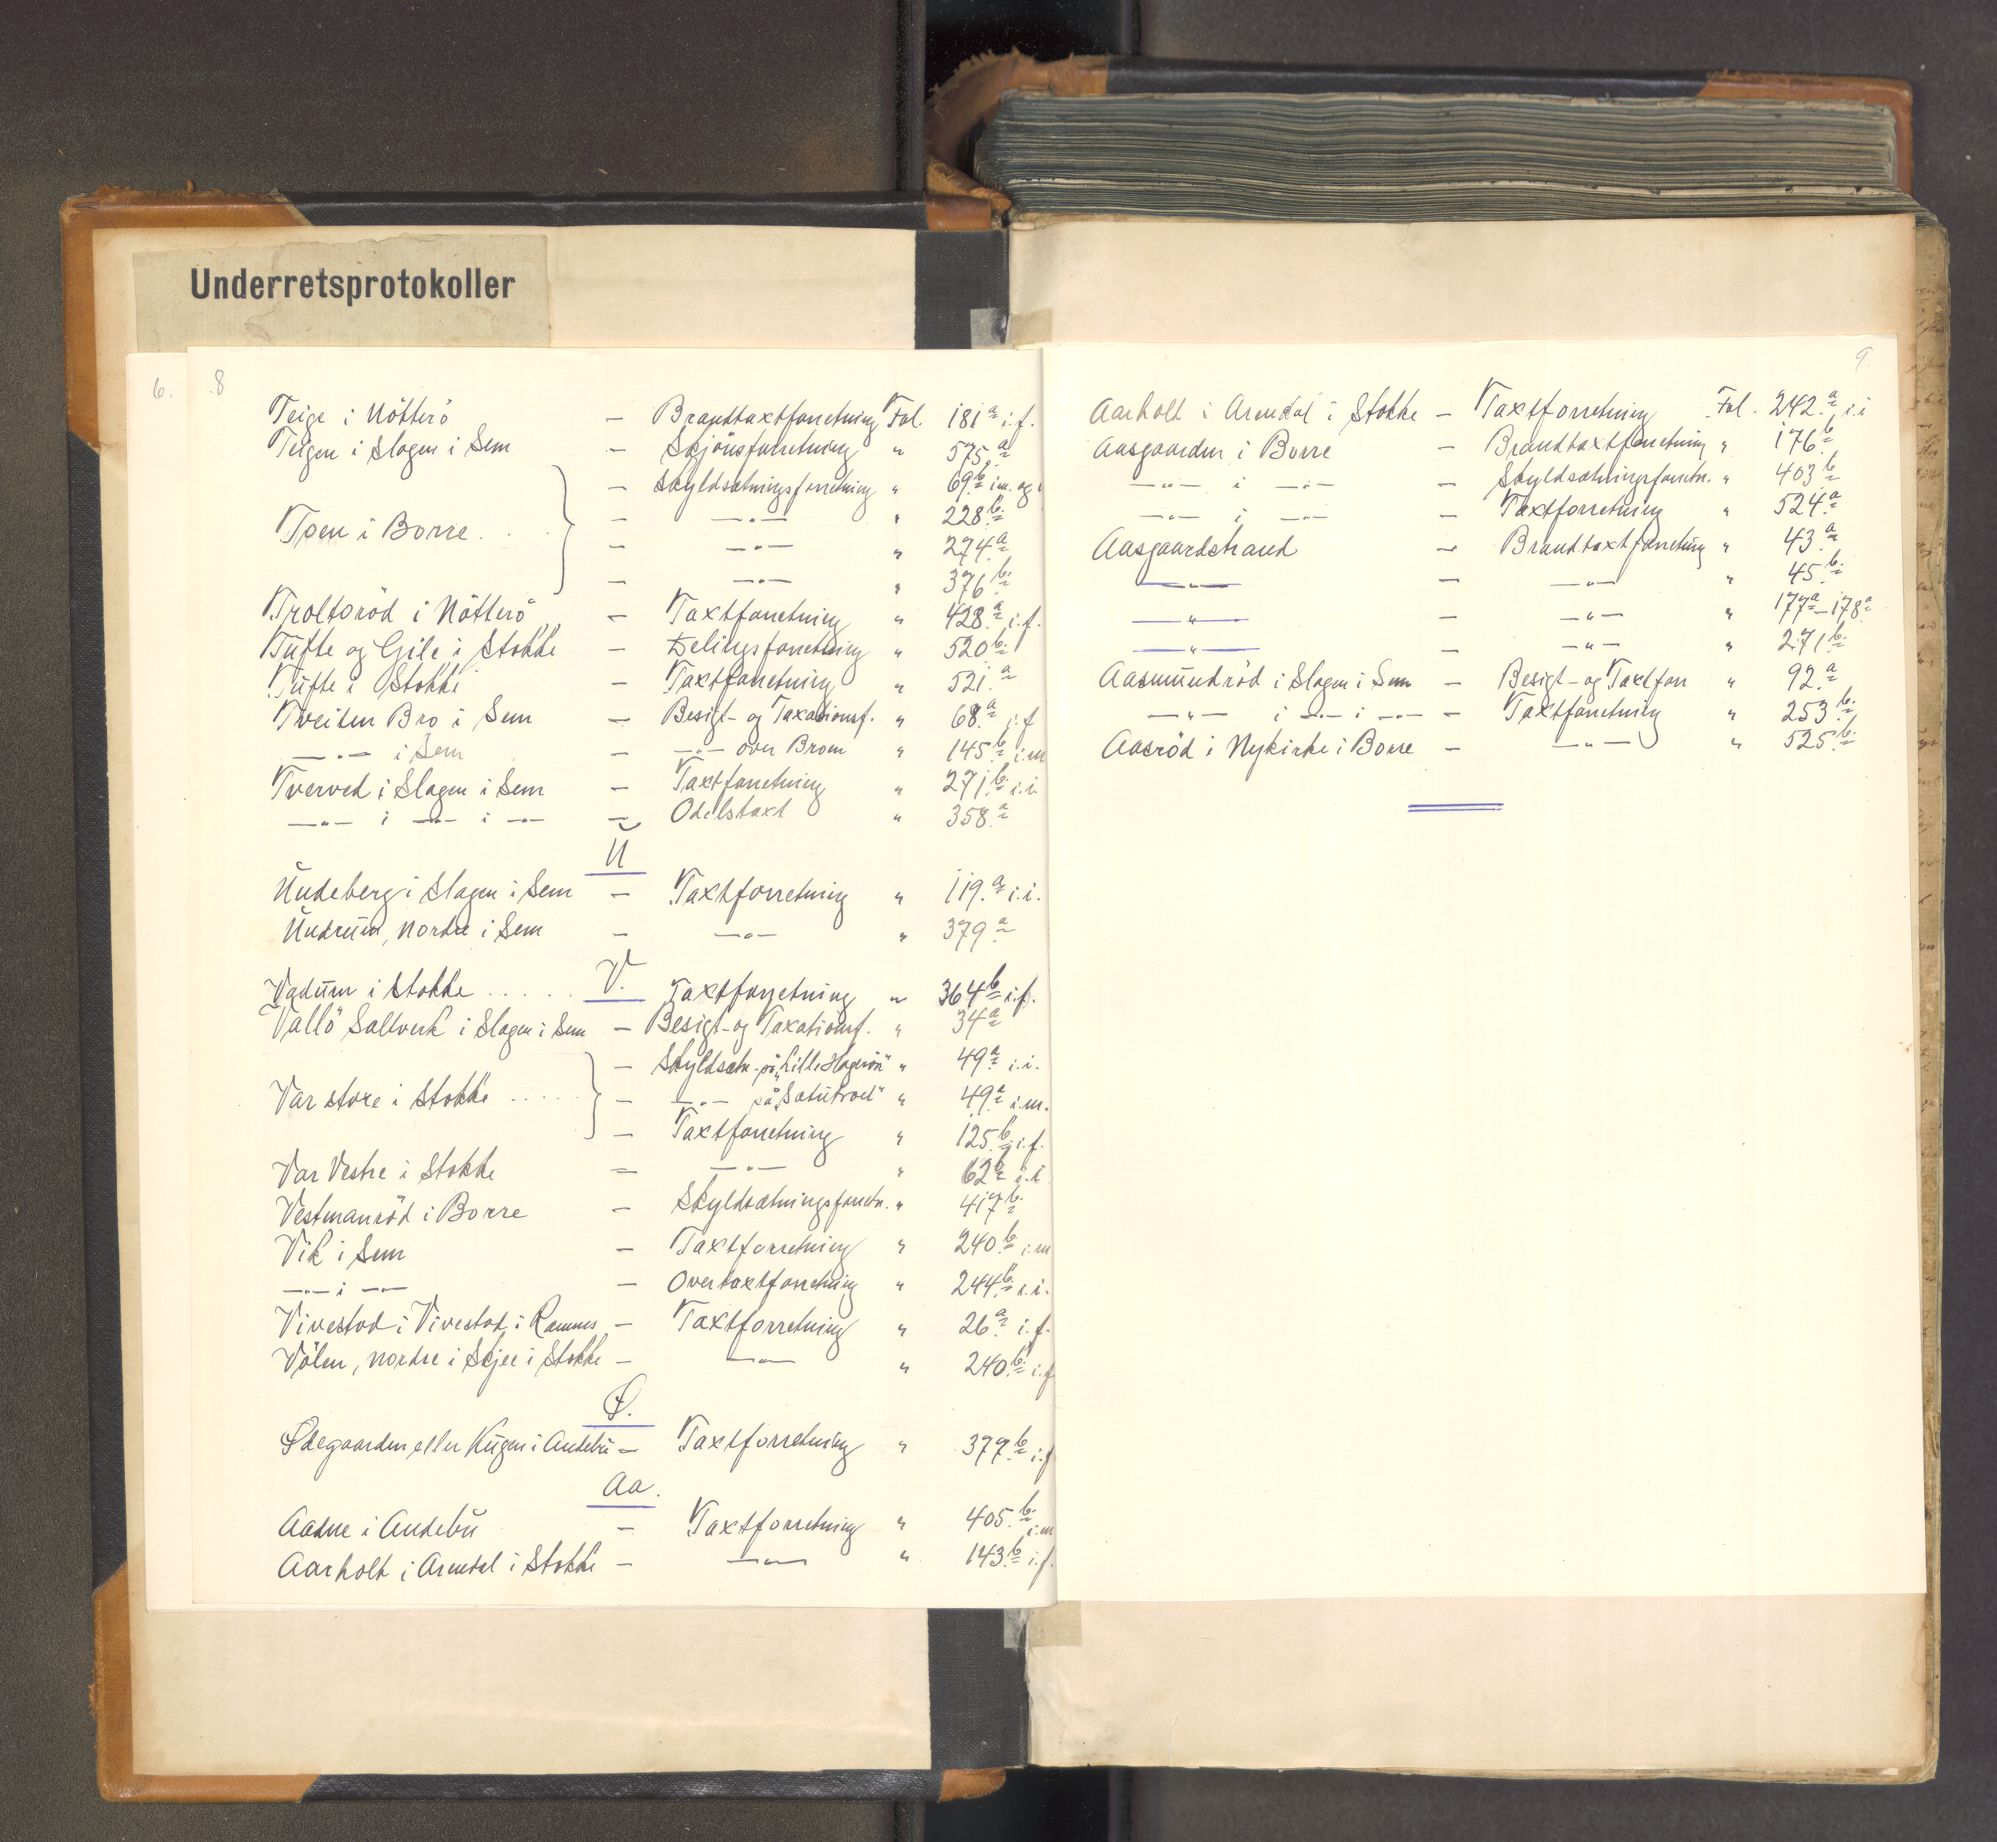 Underretsprotokoller
6.
8
Teige i Nötterö — Brandtaxtforretning Fol. 181 a i.f.
Teigen i Slagen i Sem — Skjönsforretning " 575. a
— Skyldsætningsforretning " 69. b i.m. og
Toen i Borre . . . — —"— " 228. b
— —"— " 274. a
— —"— " 376 b
Troltoröd i Nötterö — Taxtforretning " 428. a i.f.
Tufte og Gile i Stokke — Delingsforretning " 520 b
Tufte i Stokke — Taxtforretning " 521. a
Tveiten Bro i Sem — Besigt- og Taxationsf. " 68. a i.f
—"— i Sem — —"— over Broen " 145. b i.m
Tverved i Slagen i Sem — Taxtforretning " 271. b i.i.
—"— i —"— i —"— — Odelstaxt " 358. a
U
Undeberg i Slagen i Sem — Taxtforretning " 119. a i.i.
Undrum, nordre i Sem — —"— " 379. a
V.
Vadum i Stokke . . . . . Taxtforretning " 364 b i.f.
Vallö Saltverk i Slagen i Sem — Besigt- og Taxationsf. " 34 a
— Skyldsætn. på „Lille " 49. a i.i.
Var store i Stokke . . . . . — —"— på " 49. a i.m.
— Taxtforretning " 125. b i.f.
Var Vestre i Stokke — —"— " 62 i.i
Vestmanröd i Borre — Skyldsætningsforretn. " 417 b
Vik i Sem — Taxtforretning " 240. b i.m
—"— i —"— — Overtaxtforretning " 244. b i.i.
Vivestad i Vivestad i Ramnes — Taxtforretning " 26. a i.f.
Völen, nordre i Skjee i Stokke — —"— " 240. b i.f
Ø.
Ødegaarden eller Kugen i Andebu — Taxtforretning " 377. b i.f
Aa.
Aadne i Andebu — Taxtforretning " 405. b i.m
Aarholt i Arendal i Stokke — —"— " 143. b i.f.
9.
Aarholt i Arendal i Stokke — Taxtforretning Fol. 242. a i.i
Aasgaarden i Borre — Brandtaxtforretning " 176. b
—"— i —"— — Skyldsætningsforretn. " 403 b
—"— i —"— — Taxtforretning " 524. a
Aasgaardstrand — Brandtaxtforretning " 43. a
—"— — —"— " 45. b
—"— — —"— " 177 a — 178 a
—"— — —"— " 271 b
Aasmundröd i Slagen i Sem — Besigt- og Taxtforr " 92. a
—"— i —"— i —"— — Taxtforretning " 253. b
Aasröd i Nykirke i Borre — —"— " 525. b